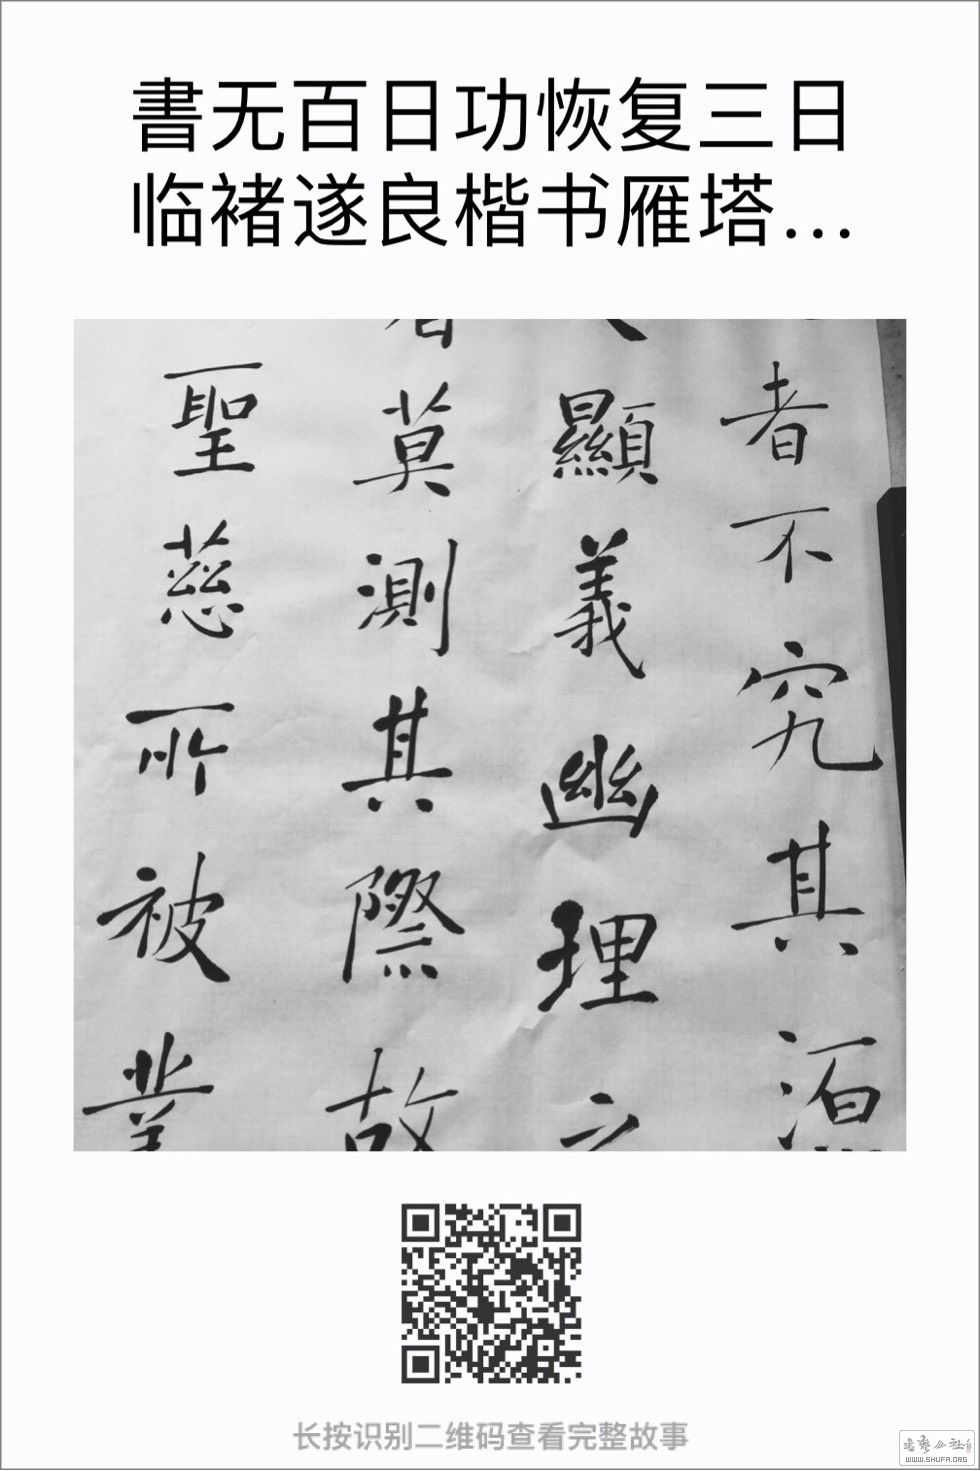 書无百日功恢复三日
临褚遂良楷书雁塔…
者不究其源
顯義幽理之
莫測其際故
聖慈所被業
长按识别二维码查看完整故事
书艺公社
WWW.SHUFA.ORG